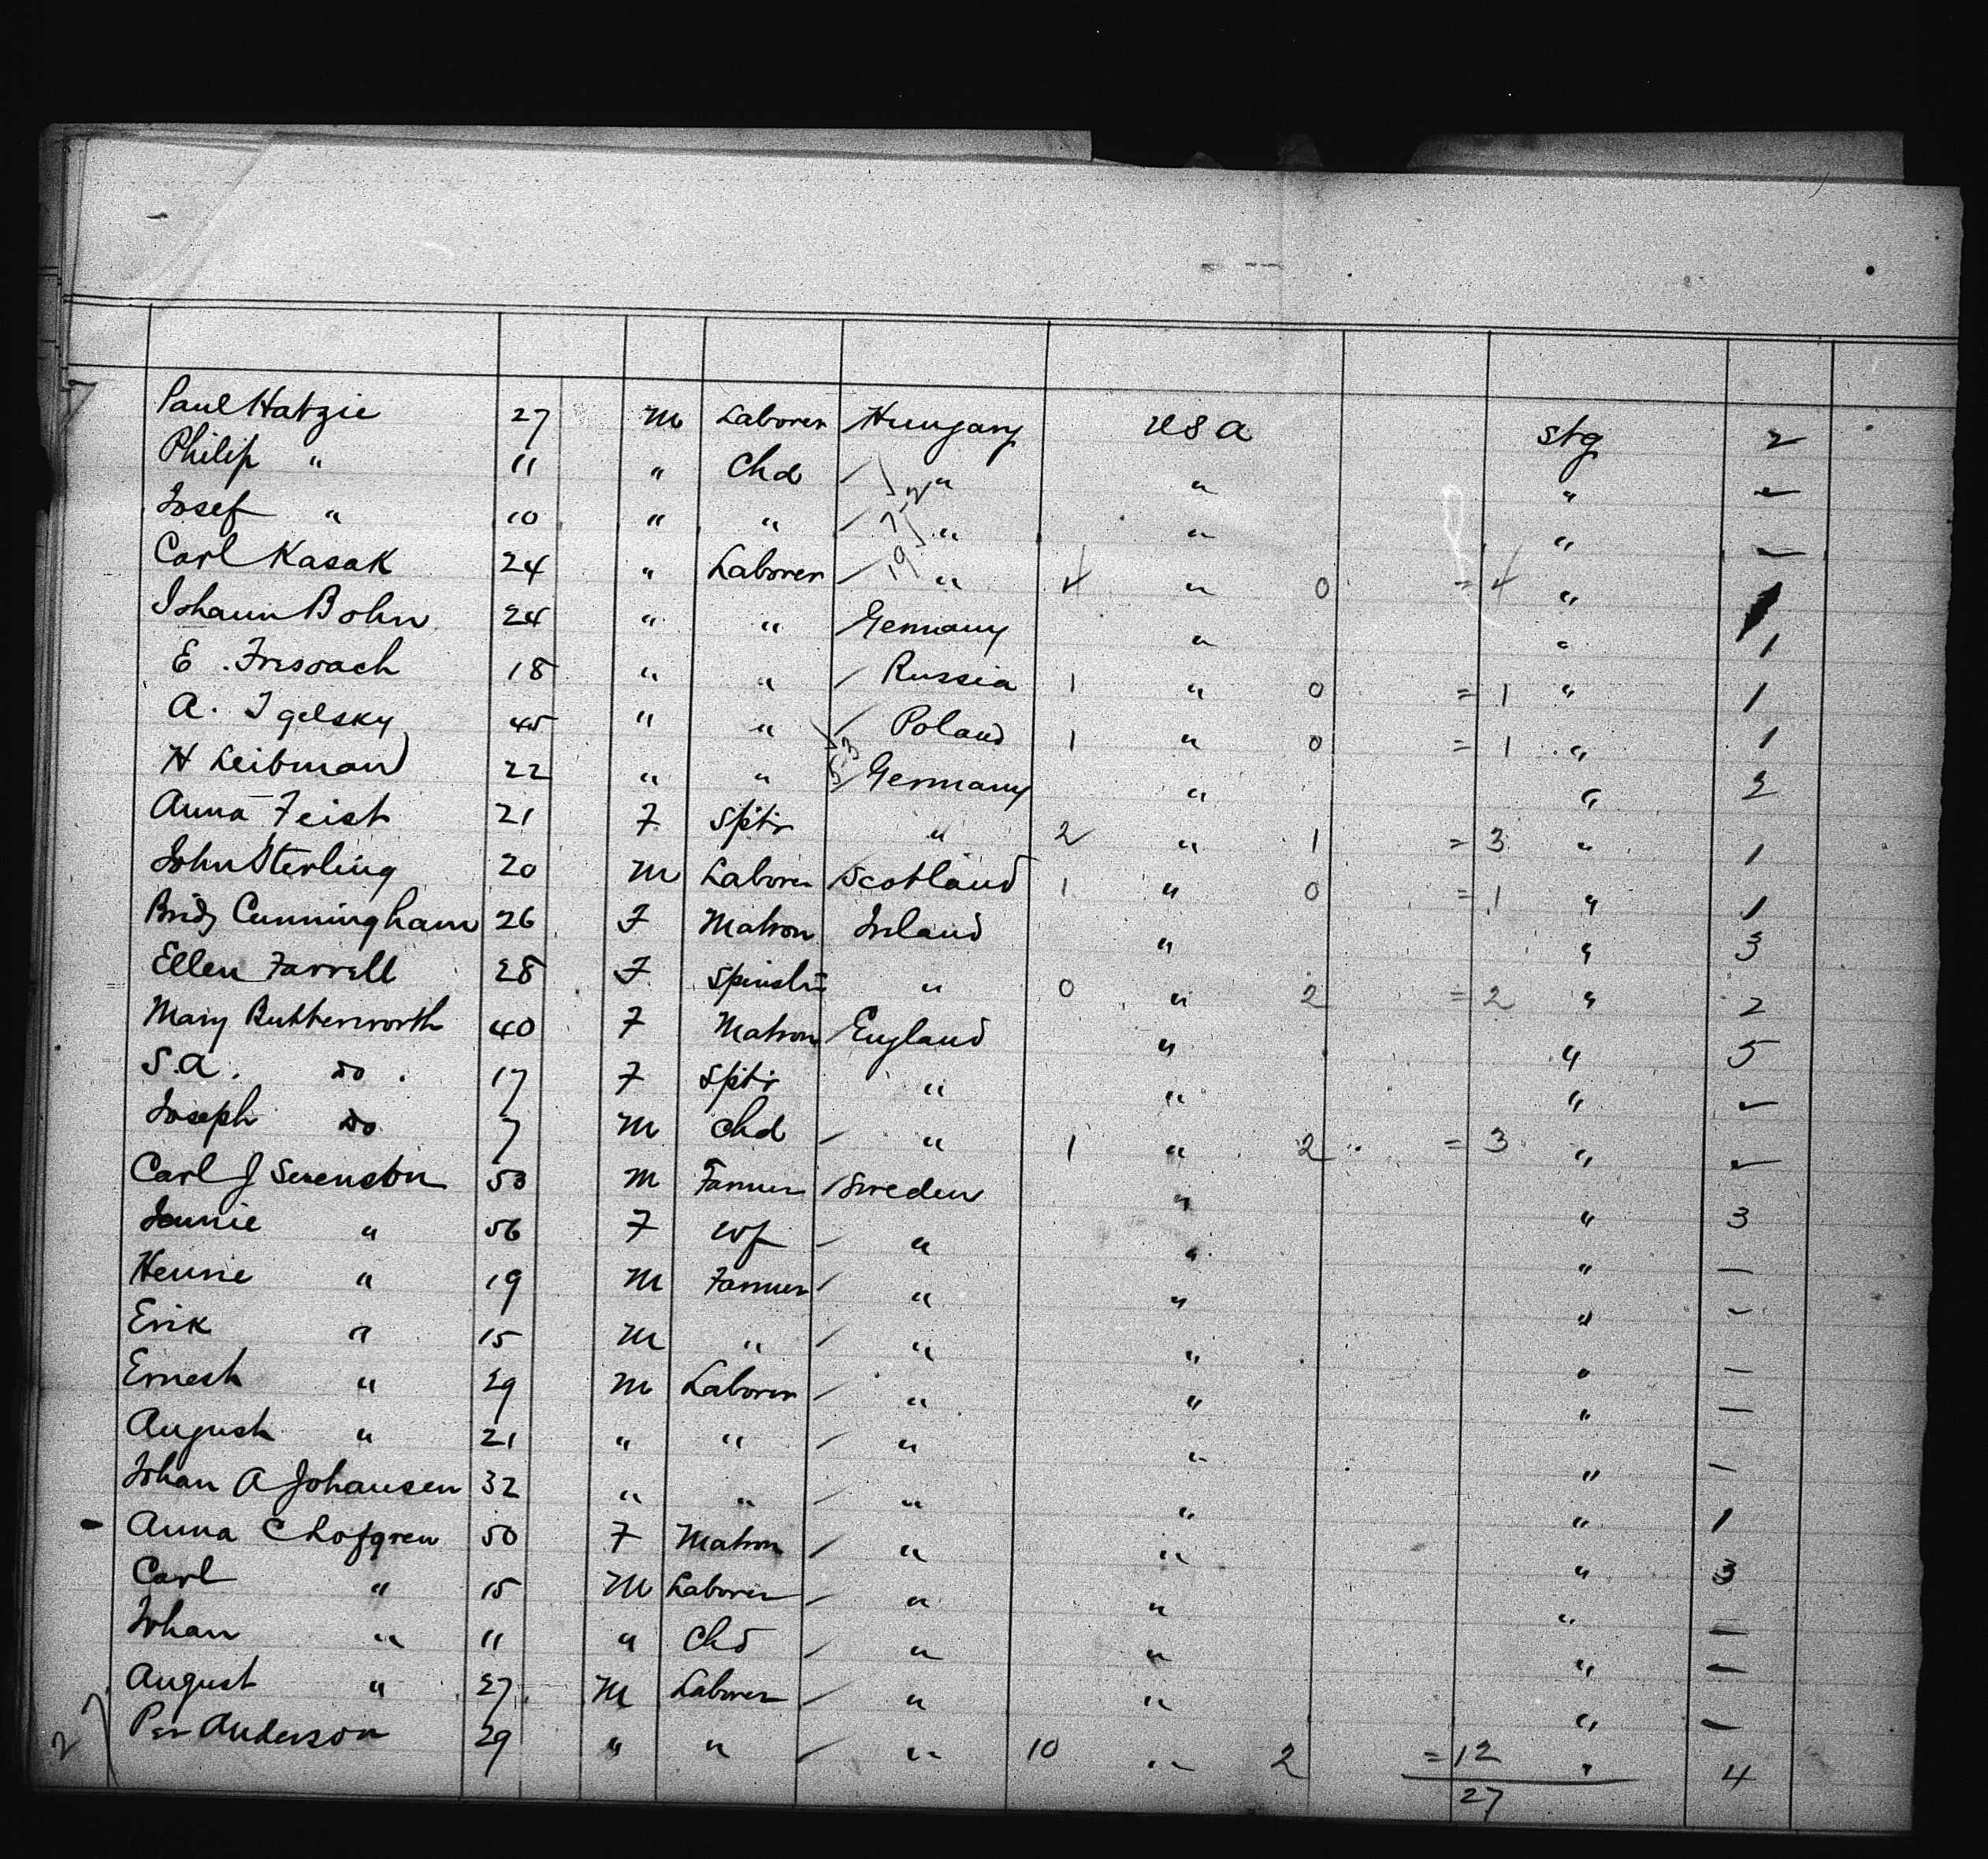 Paul Hatzie 27 M Laborer Hungary USA Stg 2
Philip " 11 " Chd " " " -
Josef " 10 " " " " " -
Carl Kasak 24 " Laborer " 4 " 0 = 4 "
Johann Bohn 24 " " Germany " " 1
E. 18 " " Russia 1 " 0 = 1 " 1
A. Igelsky 45 " " Poland 1 " 0 = 1 " 1
H Leibman 22 " " Germany " " 2
Anna Feist 21 F Sptr " 2 " 1 = 3 " 1
John Sterling 20 M Laborer Scotland 1 " 0 = 1 " 1
Bridg Cunningham 26 F Matron Ireland " " 3
Ellen Farrell 28 F Spinstr " 0 " 2 = 2 " 2
Mary Butterworth 40 F Matron England " " 5
S.A. do. 17 F Sptr " " " -
Joseph do 7 M Chd " 1 " 2 = 3 " -
Carl J Svenston 53 M Farmer Sweden " " 3
Jennie " 56 F Wf " " " -
Henrie " 19 M Farmer " " " -
Erik " 15 M " " " " -
Ernest " 29 M Laborer " " " -
August " 21 " " " " " -
Johan A Johansen 32 " " " " " 1
Anna C Lofgren 50 F Matron " " " 3
Carl " 15 M Laborer " " " -
Johan " 11 " Chd " " " -
August " 27 M Laborer " " " -
Per Anderson 29 " " " 10 " 2 = 12 " 4
27 27